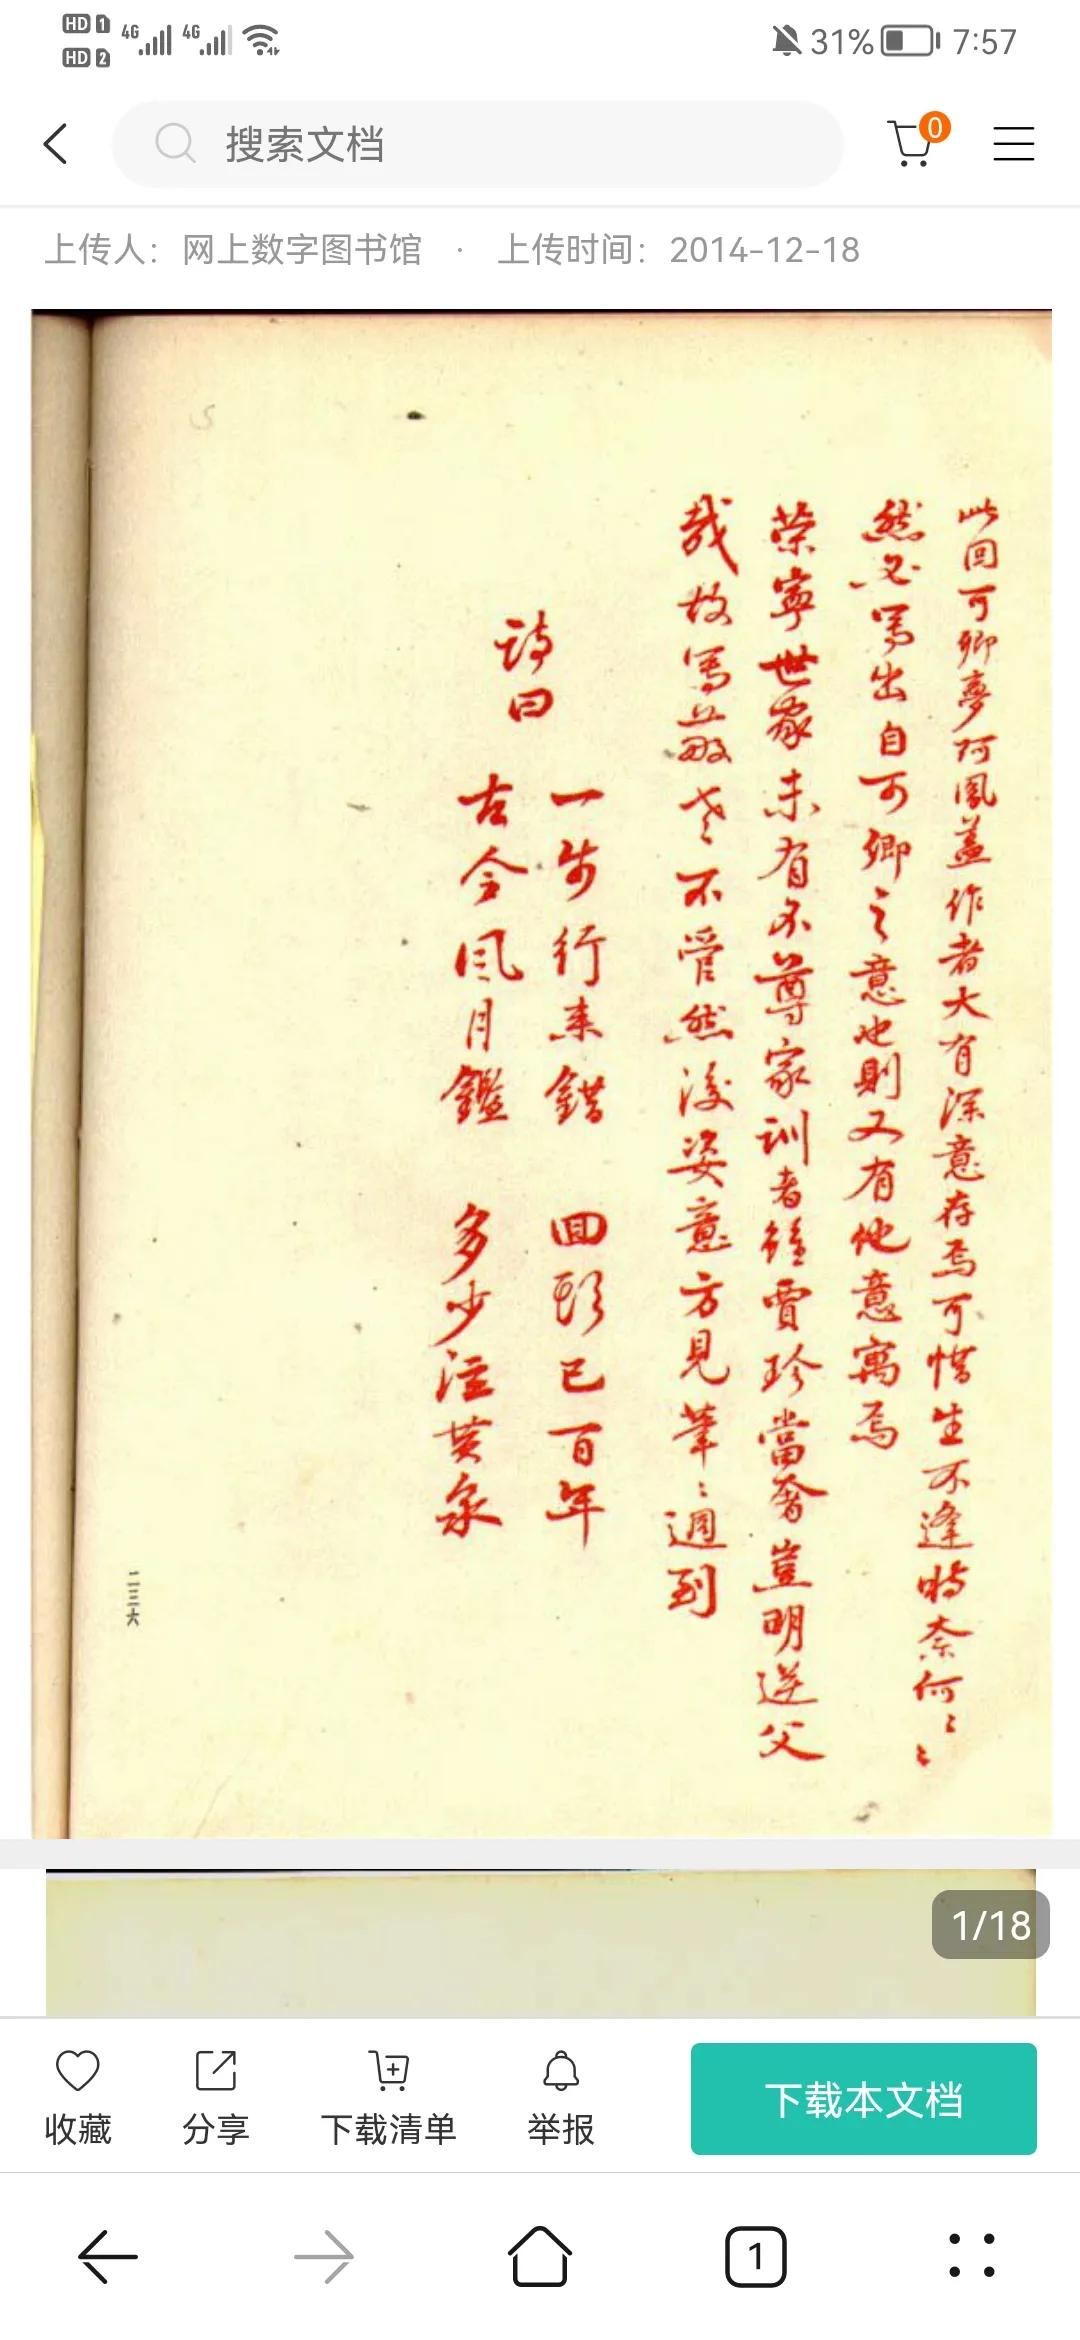 HD 1 4G 4G 31% 7:57
HD 2
搜索文档 0
上传人：网上数字图书馆 · 上传时间：2014-12-18
此回可卿夢阿鳳蓋作者大有深意存焉可惜生不逢時奈何〻〻
然必寫出自可卿之意也則又有他意寓焉
榮寧世家未有不尊家訓者雖賈珍當奢豈明逆父
哉故寫敬老不管然後姿意方見筆〻週到
詩曰
一步行來錯 回頭已百年
古今風月鑑 多少泣黄泉
二三六
1/18
收藏 分享 下载清单 举报 下载本文档
1